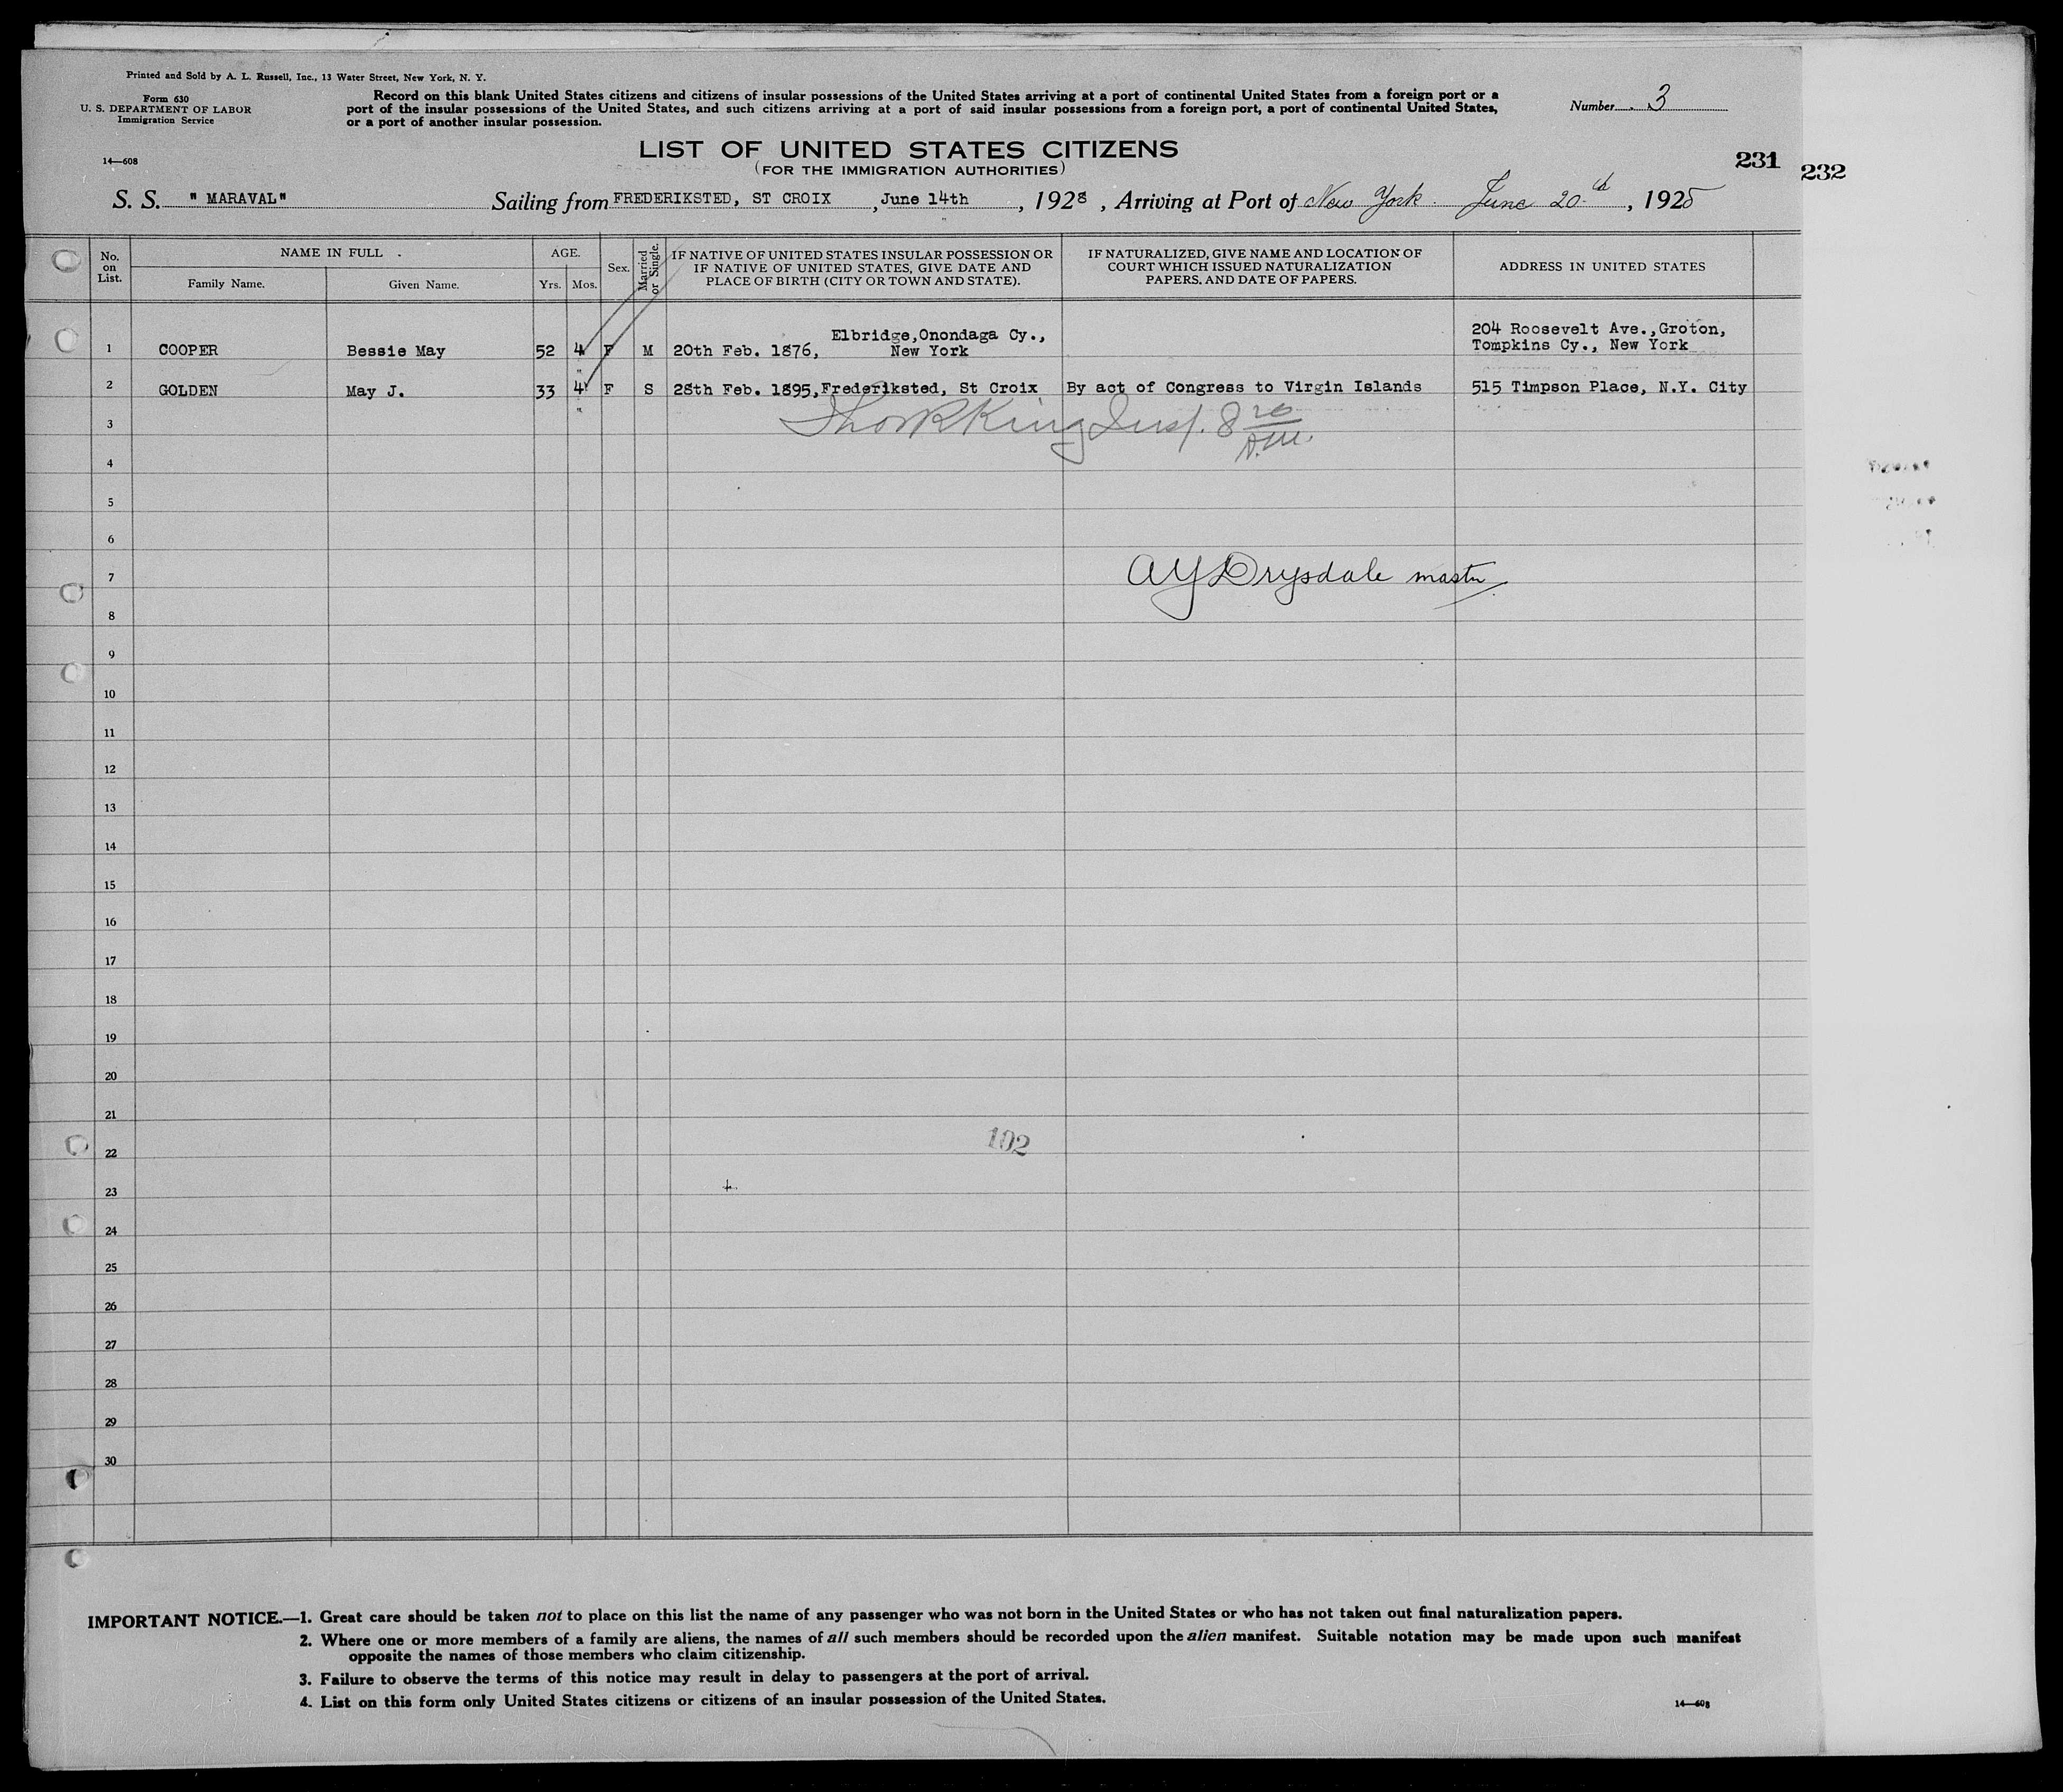 Printed and Sold by A. L. Russell, Inc., 13 Water Street, New York, N. Y.
Form 630
U. S. DEPARTMENT OF LABOR
Immigration Service
14—608
Record on this blank United States citizens and citizens of insular possessions of the United States arriving at a port of continental United States from a foreign port or a
port of the insular possessions of the United States, and such citizens arriving at a port of said insular possessions from a foreign port, a port of continental United States,
or a port of another insular possession.
Number 3
LIST OF UNITED STATES CITIZENS
(FOR THE IMMIGRATION AUTHORITIES)
231
232
S. S. " MARAVAL" Sailing from FREDERIKSTED, ST CROIX , June 14th , 1928 , Arriving at Port of New York. June 20th , 1928
No. on List. NAME IN FULL AGE. Sex. Married or Single. IF NATIVE OF UNITED STATES INSULAR POSSESSION OR IF NATIVE OF UNITED STATES, GIVE DATE AND PLACE OF BIRTH (CITY OR TOWN AND STATE). IF NATURALIZED, GIVE NAME AND LOCATION OF COURT WHICH ISSUED NATURALIZATION PAPERS, AND DATE OF PAPERS. ADDRESS IN UNITED STATES
Family Name. Given Name. Yrs. Mos.
Elbridge,Onondaga Cy., 204 Roosevelt Ave.,Groton,
1 COOPER Bessie May 52 4 F M 20th Feb. 1876, New York Tompkins Cy., New York
2 GOLDEN May J. 33 4 F S 28th Feb. 1895,Frederiksted, St Croix By act of Congress to Virgin Islands 515 Timpson Place, N.Y. City
3 King Insp. 8 A.M.
4
5
6
7 AY Drysdale master
8
9
10
11
12
13
14
15
16
17
18
19
20
21
22 102
23
24
25
26
27
28
29
30
IMPORTANT NOTICE.—1. Great care should be taken not to place on this list the name of any passenger who was not born in the United States or who has not taken out final naturalization papers.
2. Where one or more members of a family are aliens, the names of all such members should be recorded upon the alien manifest. Suitable notation may be made upon such manifest
opposite the names of those members who claim citizenship.
3. Failure to observe the terms of this notice may result in delay to passengers at the port of arrival.
4. List on this form only United States citizens or citizens of an insular possession of the United States.
14—608